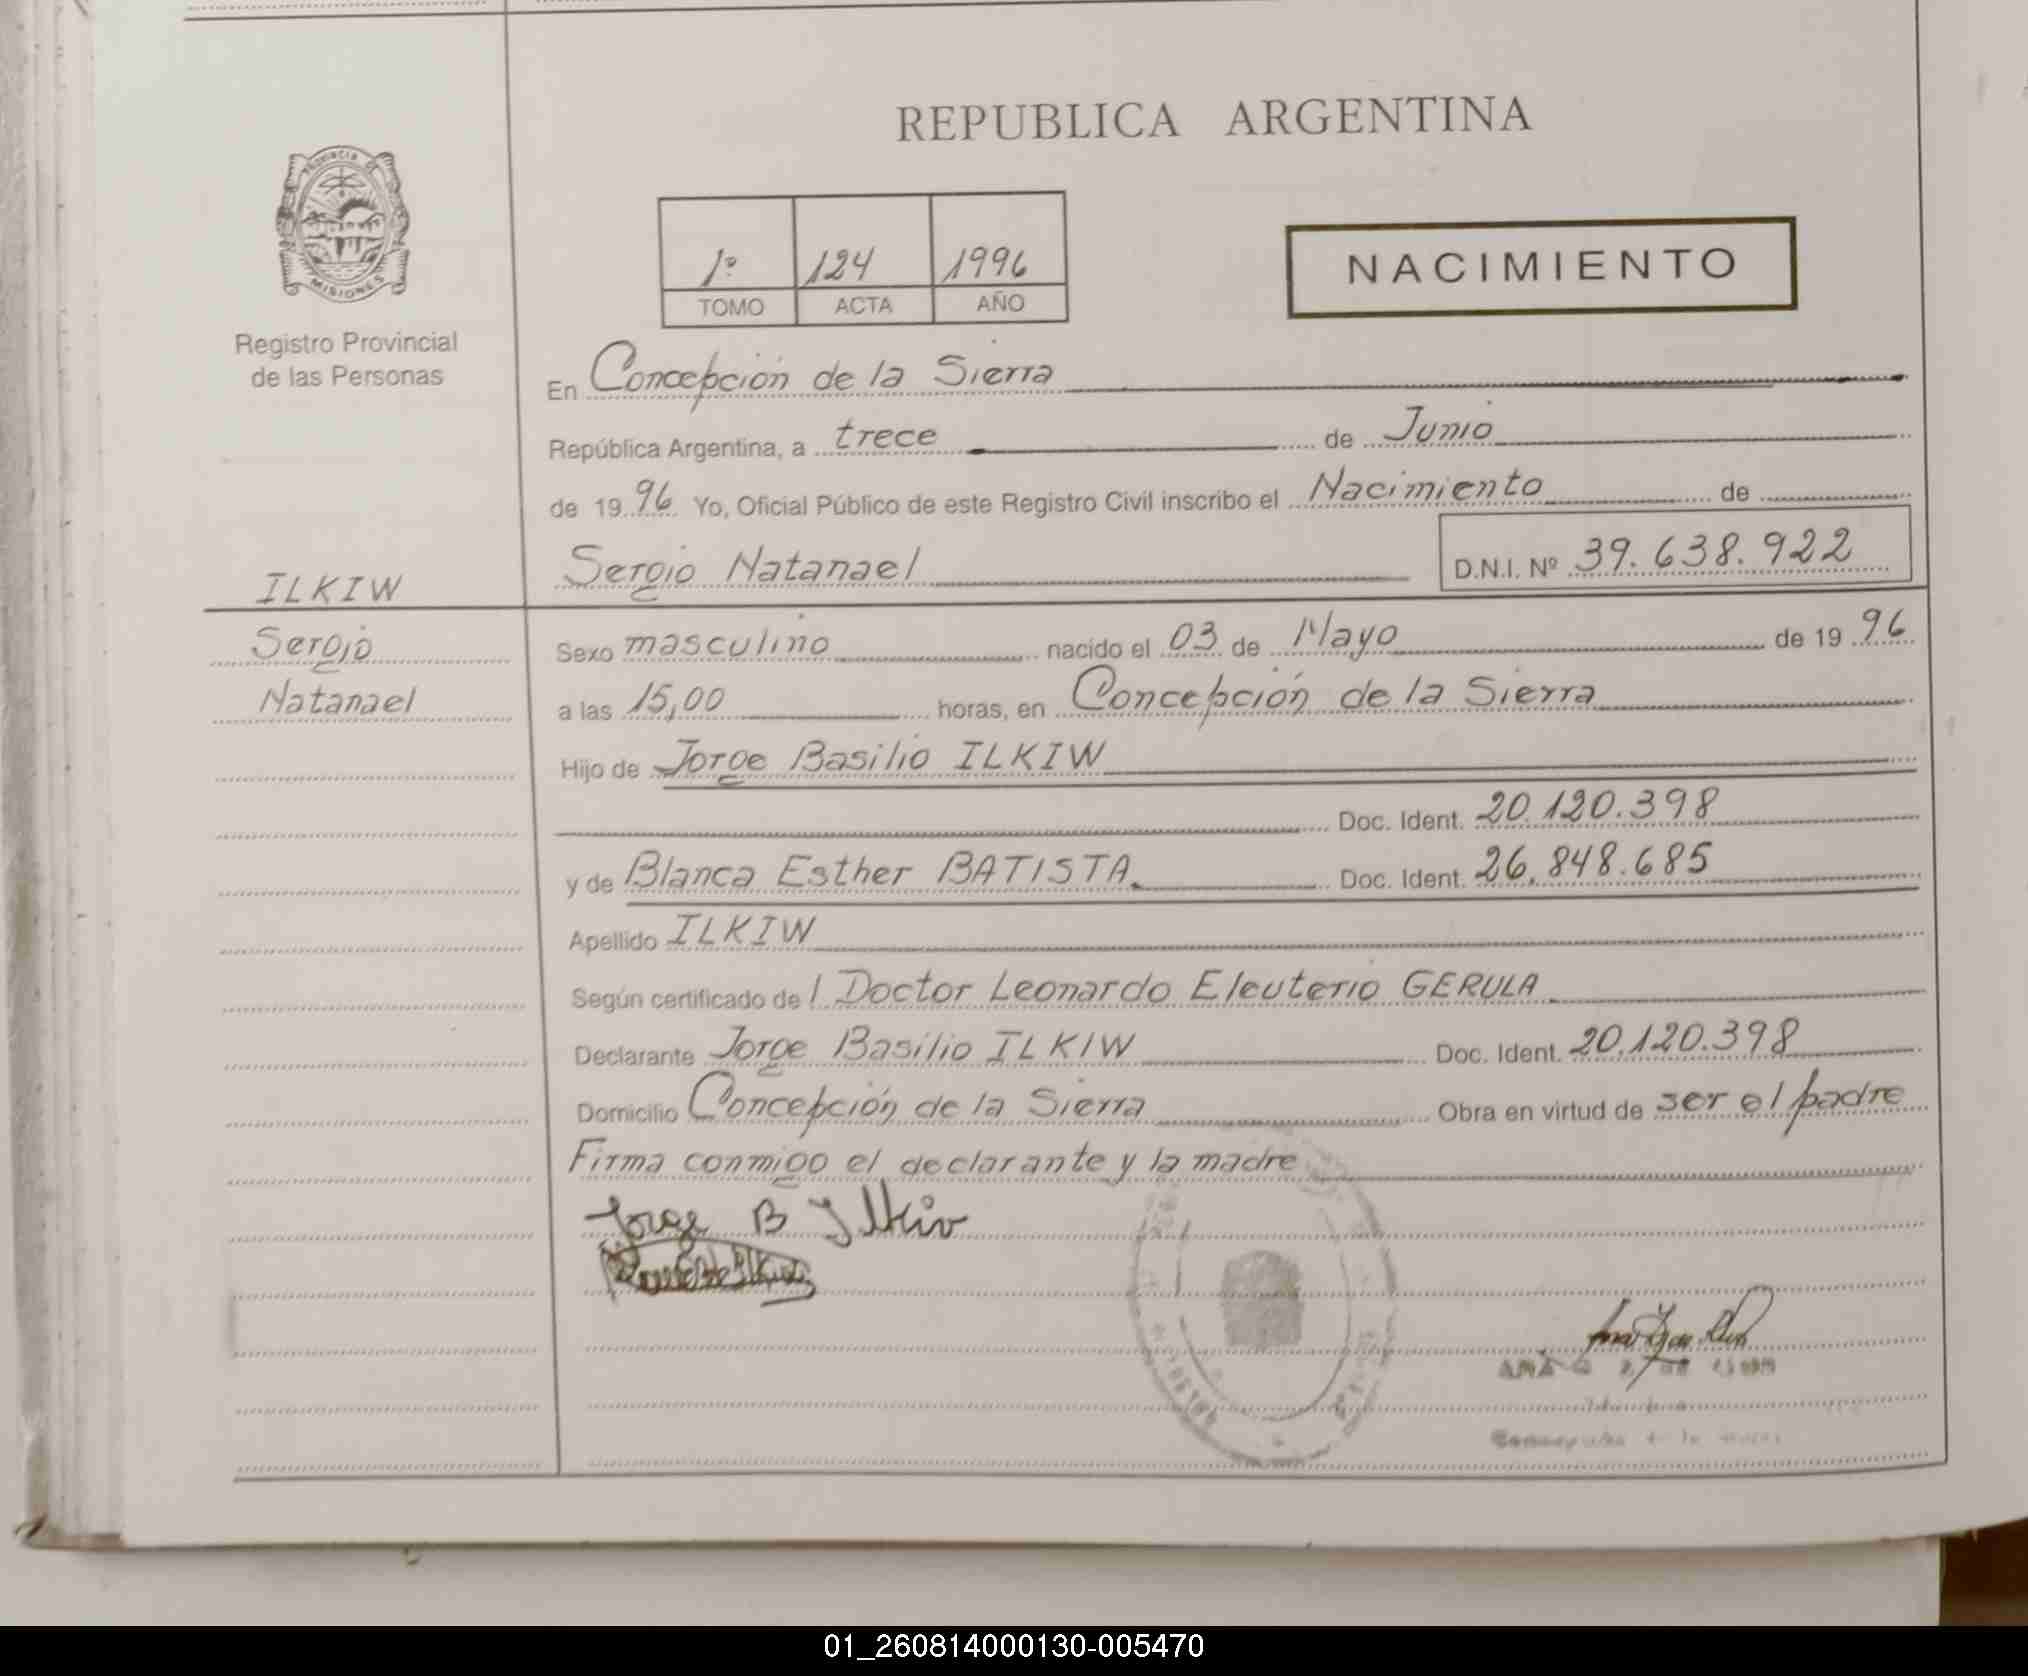 REPUBLICA ARGENTINA
PROVINCIA DE MISIONES
Registro Provincial
de las Personas
1º 124 1996
TOMO ACTA AÑO
NACIMIENTO
En Concepción de la Sierra
República Argentina, a trece de Junio
de 1996 Yo, Oficial Público de este Registro Civil inscribo el Nacimiento de
Sergio Natanael D.N.I. Nº 39.638.922
ILKIW
Sergio
Natanael
Sexo masculino nacido el 03 de Mayo de 1996
a las 15,00 horas, en Concepción de la Sierra
Hijo de Jorge Basilio ILKIW
Doc. Ident. 20.120.398
y de Blanca Esther BATISTA Doc. Ident. 26.848.685
Apellido ILKIW
Según certificado del Doctor Leonardo Eleuterio GERULA
Declarante Jorge Basilio ILKIW Doc. Ident. 20.120.398
Domicilio Concepción de la Sierra Obra en virtud de ser el padre
Firma conmigo el declarante y la madre
Jorge B Ilkiw
01_260814000130-005470